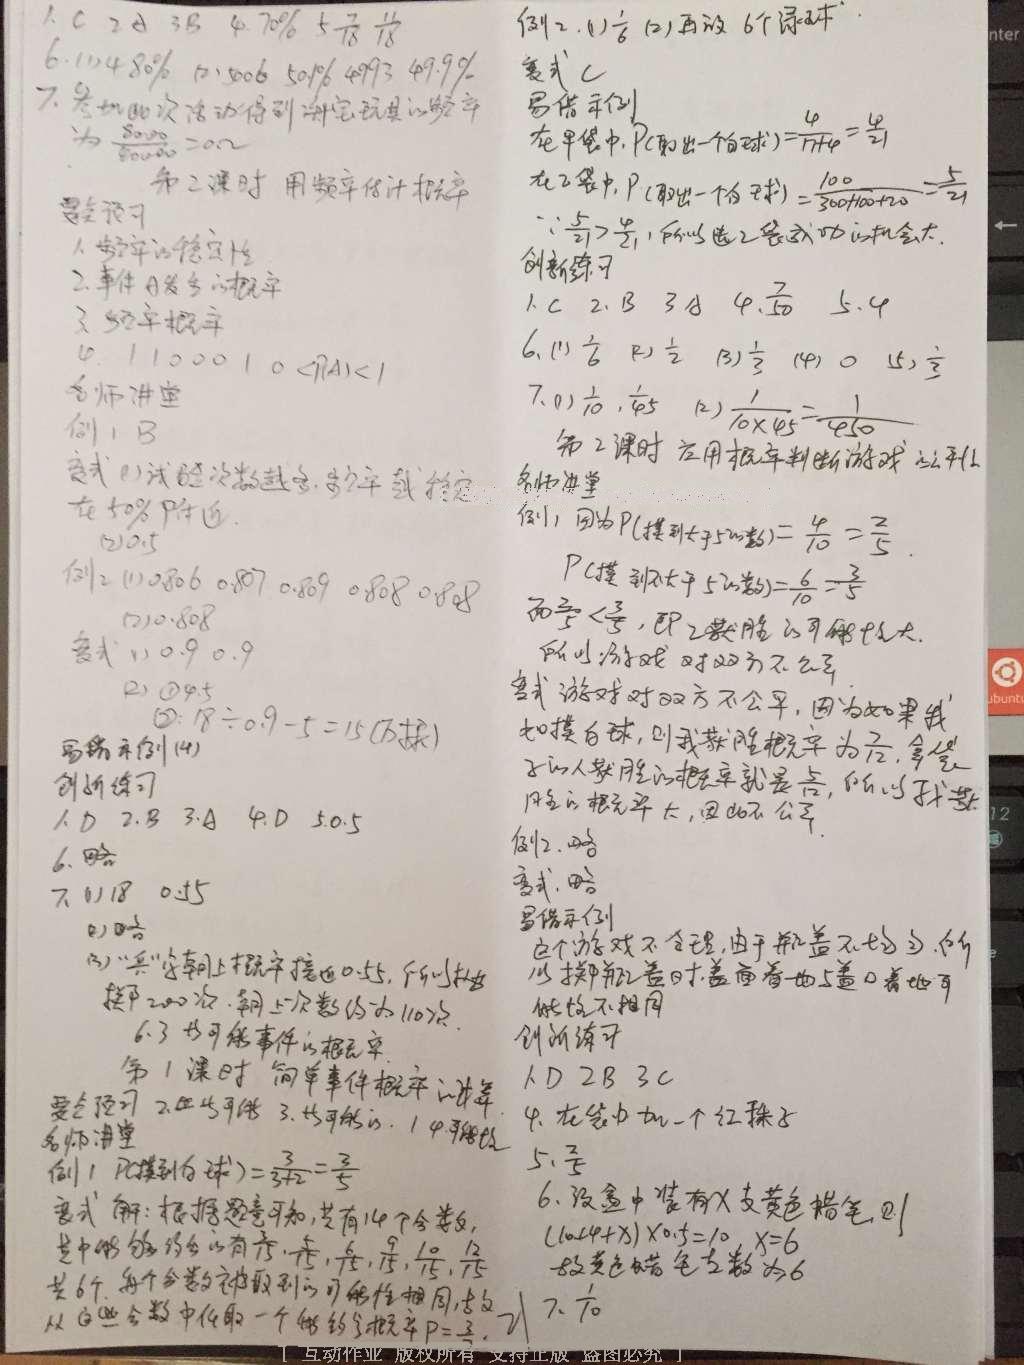 1. C 2. A 3 B 4. 70% 5. 7/18 11/18
6. (1) 4 80% (2) 5006 50.1% 4993 49.9%
7. 参加此次活动得到海宝玩具的频率
为 8000/40000 = 0.2
第2课时 用频率估计概率
要点预习
1. 频率的稳定性
2. 事件A发生的概率
3. 频率 概率
4. 1 1 0 0 0 1 0 < P(A) < 1
名师讲堂
例1 B
变式 (1) 试验次数越多,频率越稳定
在50%附近.
(2) 0.5
例2 (1) 0.806 0.807 0.809 0.808 0.808
(2) 0.808
变式 (1) 0.9 0.9
(2) ① 4.5
②: 18÷0.9-5=15(万棵)
易错示例 (4)
创新练习
1. D 2. B 3. A 4. D 5. 0.5
6. 略
7. (1) 18 0.55
(2) 略
(3) "兵"字朝上概率接近0.55, 所以抛
掷200次, 朝上次数约为110次.
6.3 等可能事件的概率
第1课时 简单事件概率的计算
要点预习 2. 等可能 3. 等可能的. 1 4. 可能性
名师讲堂
例1 P(摸到白球) = 3/(3+2) = 3/5
变式 解: 根据题意可知, 共有14个分数,
其中能够约分的有 3/15, 5/15, 6/15, 9/15, 10/15, 12/15
共6个, 每个分数被取到的可能性相同, 故
从这些分数中任取一个能约分概率P = 3/7.
21
例2. (1) 1/6 (2) 再放6个绿球.
变式 C
易错示例
在甲袋中, P(取出一个白球) = 4/(17+4) = 4/21
在乙袋中, P(取出一个白球) = 100/(300+100+20) = 5/21
∵ 5/21 > 4/21, 所以选乙袋成功的机会大.
创新练习
1. C 2. B 3. A 4. 7/50 5. 4
6. (1) 1/6 (2) 1/2 (3) 1/3 (4) 0 (5) 1/3
7. (1) 1/10, 1/45 (2) 1/(10×45) = 1/450
第2课时 应用概率判断游戏的公平性
名师讲堂
例1 因为P(摸到大于5的数) = 4/10 = 2/5.
P(摸到不大于5的数) = 6/10 = 3/5
而 2/5 < 3/5, 即乙获胜的可能性大.
所以游戏对双方不公平
变式 游戏对双方不公平, 因为如果我
如摸白球, 则我获胜概率为 7/12, 拿袋
子的人获胜的概率就是 5/12, 所以我获
胜的概率大, 因此不公平.
例2. 略
变式. 略
易错示例
这个游戏不合理, 由于瓶盖不均匀, 所
以掷瓶盖时, 盖面着地与盖口着地可
能性不相同
创新练习
1. D 2 B 3 C
4. 在袋中加一个红珠子
5. 2/5
6. 设盒中装有X支黄色蜡笔, 则
(10+4+X)×0.5=10, X=6
故黄色蜡笔支数为6
7. 1/10
enter
ubuntu
12
[ 互动作业 版权所有 支持正版 盗图必究 ]